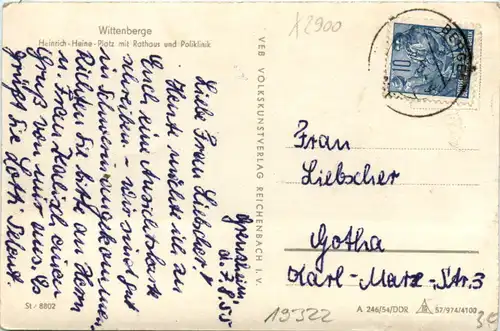 Wittenberge
Heinrich-Heine-Platz mit Rathaus und Poliklinik
d. 7.8.55
Liebe Frau Liebscher!
Heute möchte ich an
Euch eine Ansichtskarte
schreiben - wir sind gut
in Schwerin angekommen.
Richten Sie bitte an Herrn
u. Frau Kalisch einen
Gruß von mir aus. Es
grüßt Sie Lotti
St/8802
VEB VOLKSKUNSTVERLAG REICHENBACH I. V.
X2900
10
Frau
Liebscher
Gotha
Karl-Marx-Str. 3
19322
A 246/54/DDR 57/974/4100